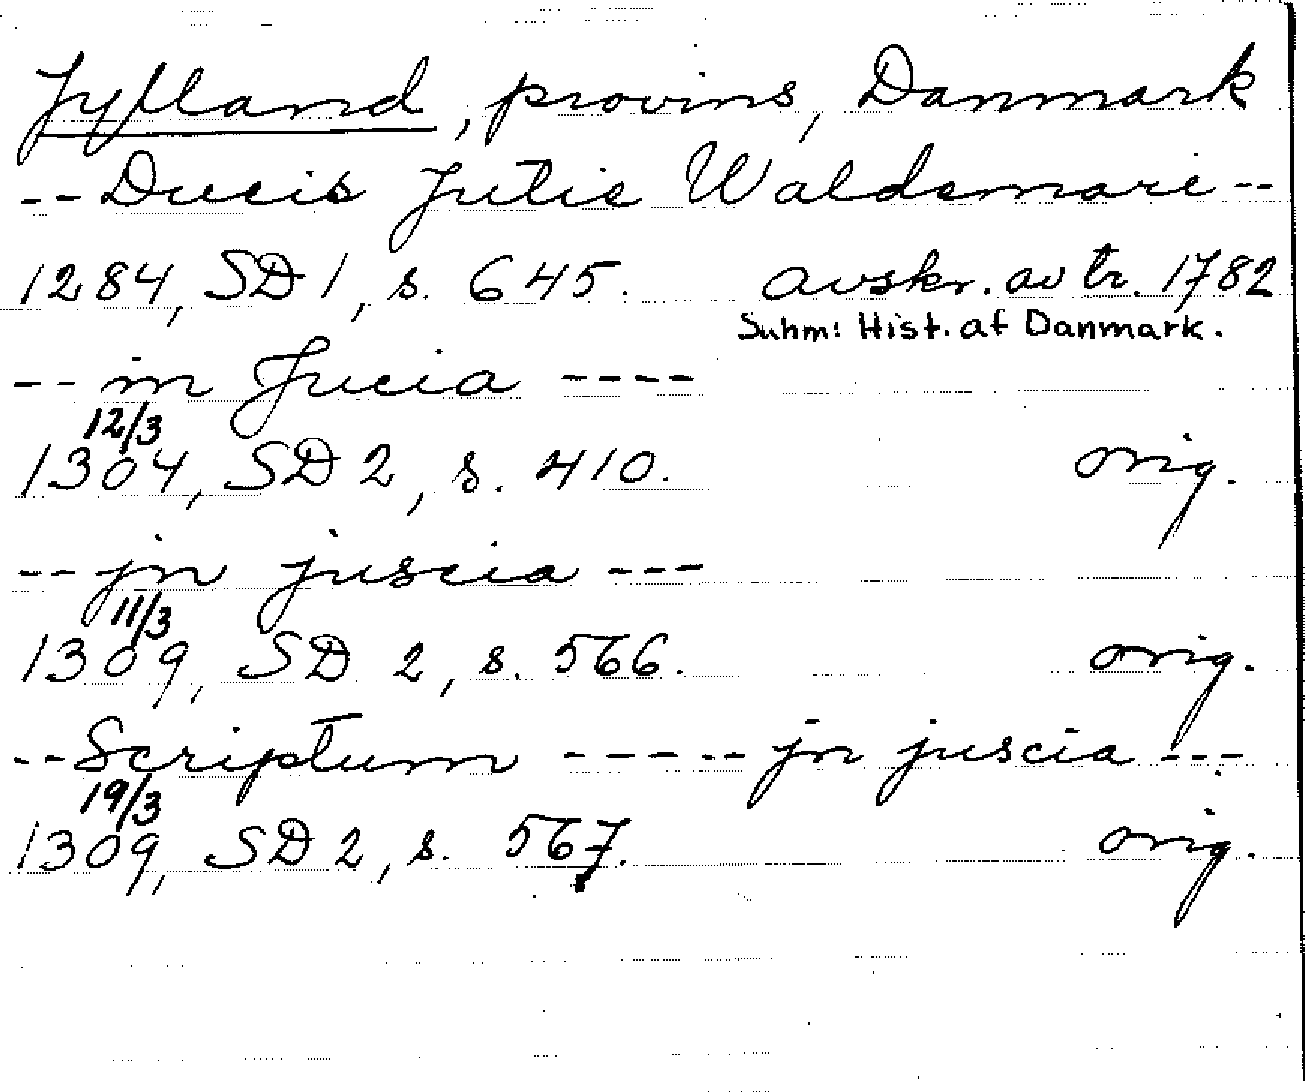 Jylland, provins, Danmark
--Ducis Jutie Waldemari--
1284, SD 1, s. 645. avskr. av tr. 1782
Suhm: Hist. af Danmark.
-- in Jucia ----
12/3
1304, SD 2, s. 410. orig.
-- jn juscia ---
11/3
1309, SD 2, s. 566. orig.
--Scriptum ----- jn juscia ---
19/3
1309, SD 2, s. 567. orig.